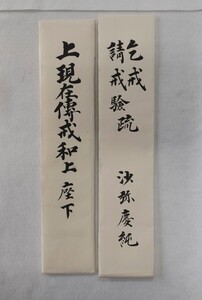 乞戒
請戒驗疏
沙弥慶純
上現在傳戒和上座下